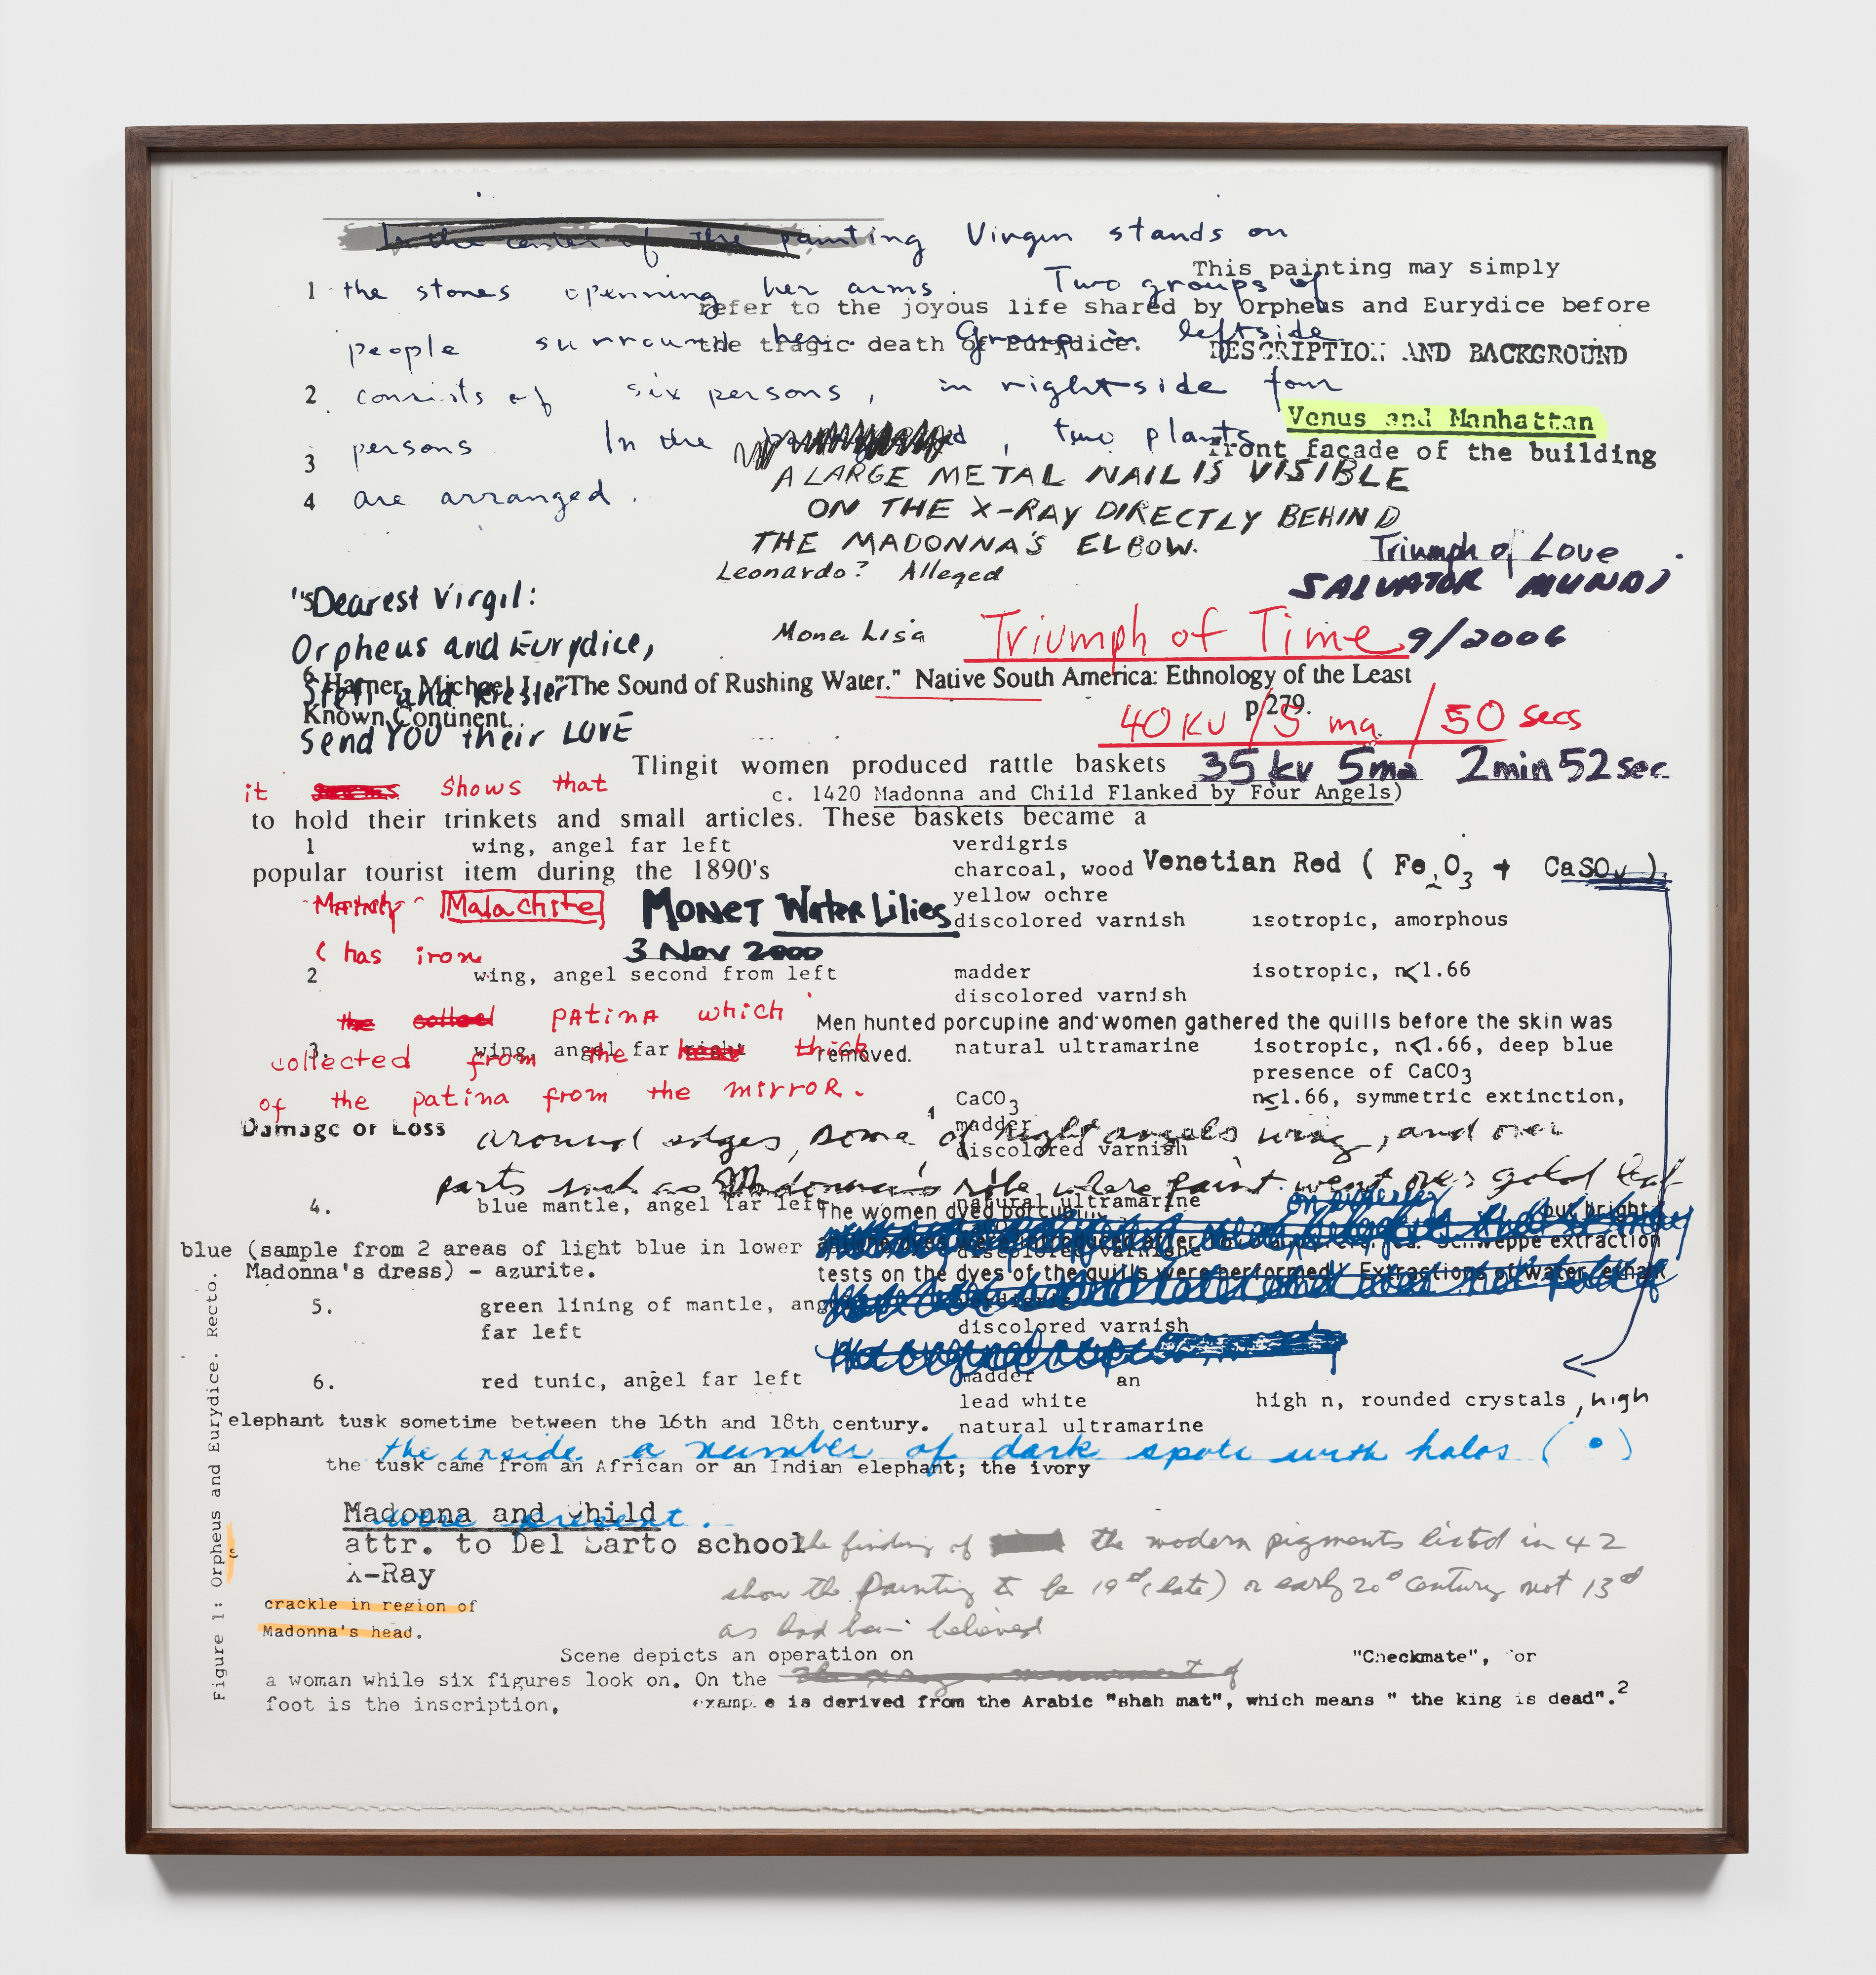 In the center of the painting Virgin stands on
This painting may simply
1 the stones openning her arms. Two groups of
refer to the joyous life shared by Orpheus and Eurydice before
people surround her. Group in leftside
the tragic death of Eurydice.
DESCRIPTION AND BACKGROUND
2 consists of six persons, in rightside four
Venus and Manhattan
3 persons In the , two plants
front façade of the building
A LARGE METAL NAIL IS VISIBLE
4 are arranged.
ON THE X-RAY DIRECTLY BEHIND
THE MADONNA'S ELBOW.
Triumph of Love
Leonardo? Alleged
SALVATOR MUNDI
"5
Dearest Virgil:
Mona Lisa
Triumph of Time 9/2006
Orpheus and Eurydice,
6 Harner, Michael J. "The Sound of Rushing Water." Native South America: Ethnology of the Least
Stefi and Kiesler
Known Continent. p 279.
40 KV / 5 ma. / 50 secs
Send YOU their LOVE
Tlingit women produced rattle baskets
35 kv 5ma 2min 52 sec.
it seems shows that
c. 1420 Madonna and Child Flanked by Four Angels)
to hold their trinkets and small articles. These baskets became a
1 wing, angel far left verdigris
popular tourist item during the 1890's
charcoal, wood
Venetian Red ( Fe2O3 + CaSO4 )
yellow ochre
Mainly Malachite
MONET Water Lilies
discolored varnish isotropic, amorphous
( has iron
3 Nov 2000
2 wing, angel second from left madder isotropic, n<1.66
discolored varnish
the collected patina which
Men hunted porcupine and women gathered the quills before the skin was
removed.
3. wing, angel far right natural ultramarine isotropic, n<1.66, deep blue
collected from the thick
presence of CaCO3
of the patina from the mirror.
CaCO3 n≤1.66, symmetric extinction,
madder
Damage or Loss around edges, some of right angels wing, and over
discolored varnish
parts such as Madonna's robe where paint went over gold leaf
4. blue mantle, angel far left natural ultramarine
The women dyed porcupine
but bright
blue (sample from 2 areas of light blue in lower
discolored varnishe
Schweppe extraction
Madonna's dress) - azurite.
tests on the dyes of the quills were performed. Extractions of water, ethan
5. green lining of mantle, ang verdigris
far left discolored varnish
6. red tunic, angel far left madder an
lead white high n, rounded crystals, high
elephant tusk sometime between the 16th and 18th century.
natural ultramarine
the inside a number of dark spots with halos ( • )
the tusk came from an African or an Indian elephant; the ivory
Madonna and Child
were present.
attr. to Del Sarto school
the finding of the modern pigments listed in 42
X-Ray
show the Painting to be 19th (late) or early 20th century not 13th
crackle in region of
Madonna's head.
as had been believed
Scene depicts an operation on
"Checkmate", for
a woman while six figures look on. On the
foot is the inscription,
example is derived from the Arabic "shah mat", which means " the king is dead".2
Figure 1: Orpheus and Eurydice. Recto.